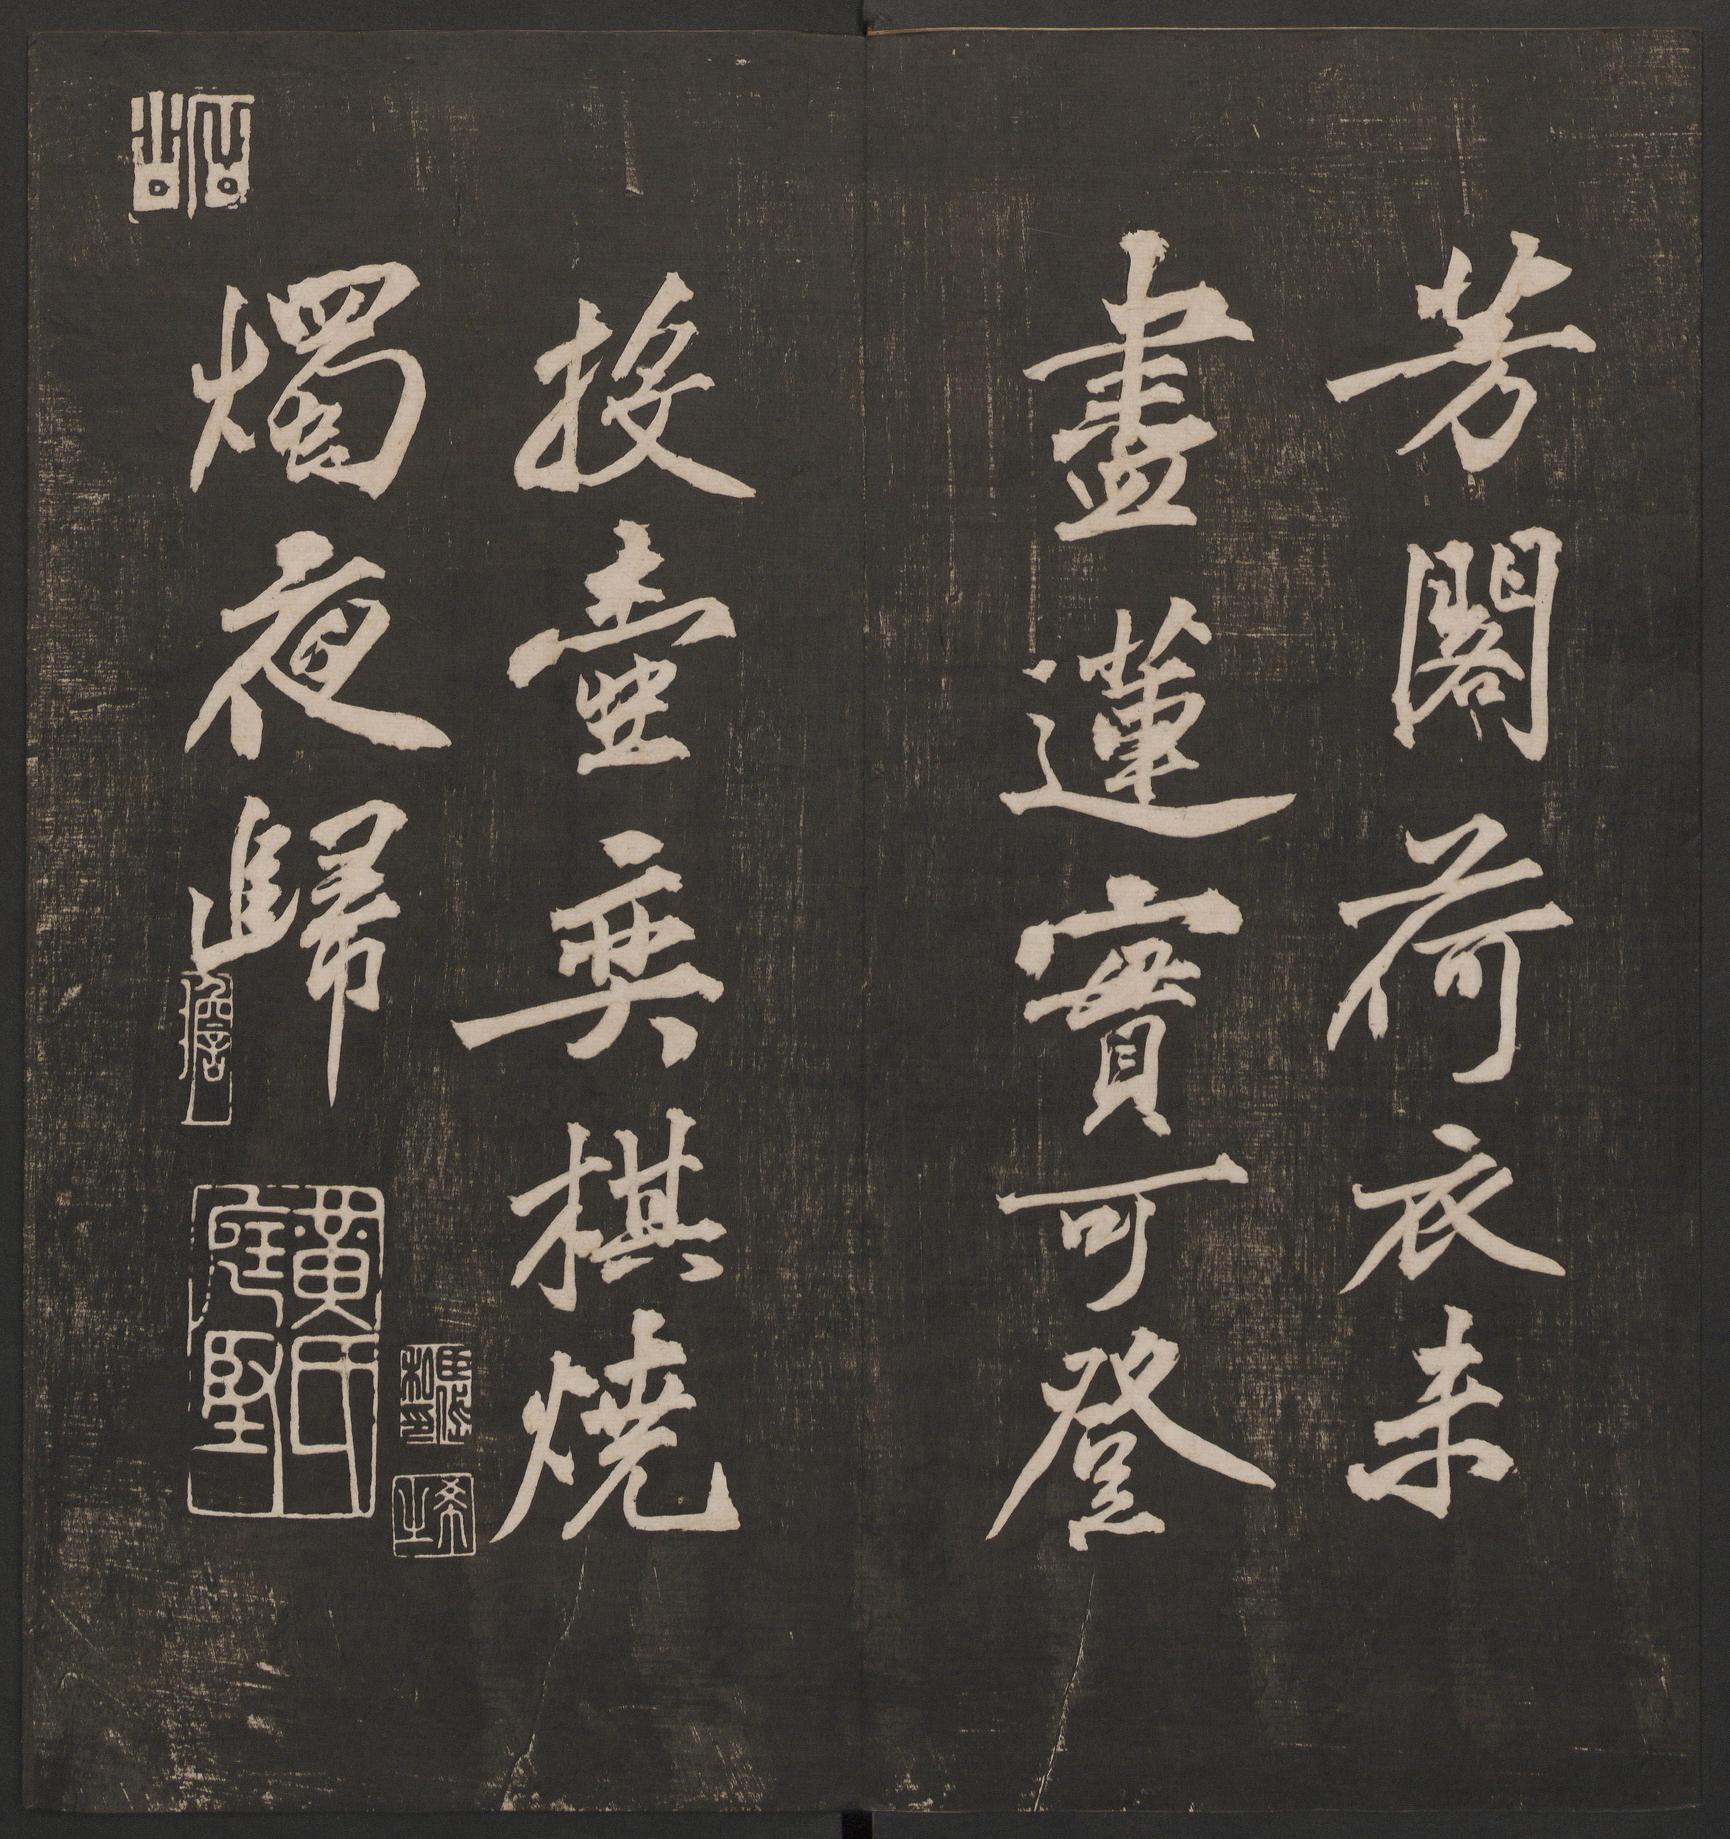 芳閣荷衣未
盡蓮實可登
投壺奕棋燒
燭夜歸
黃氏庭堅